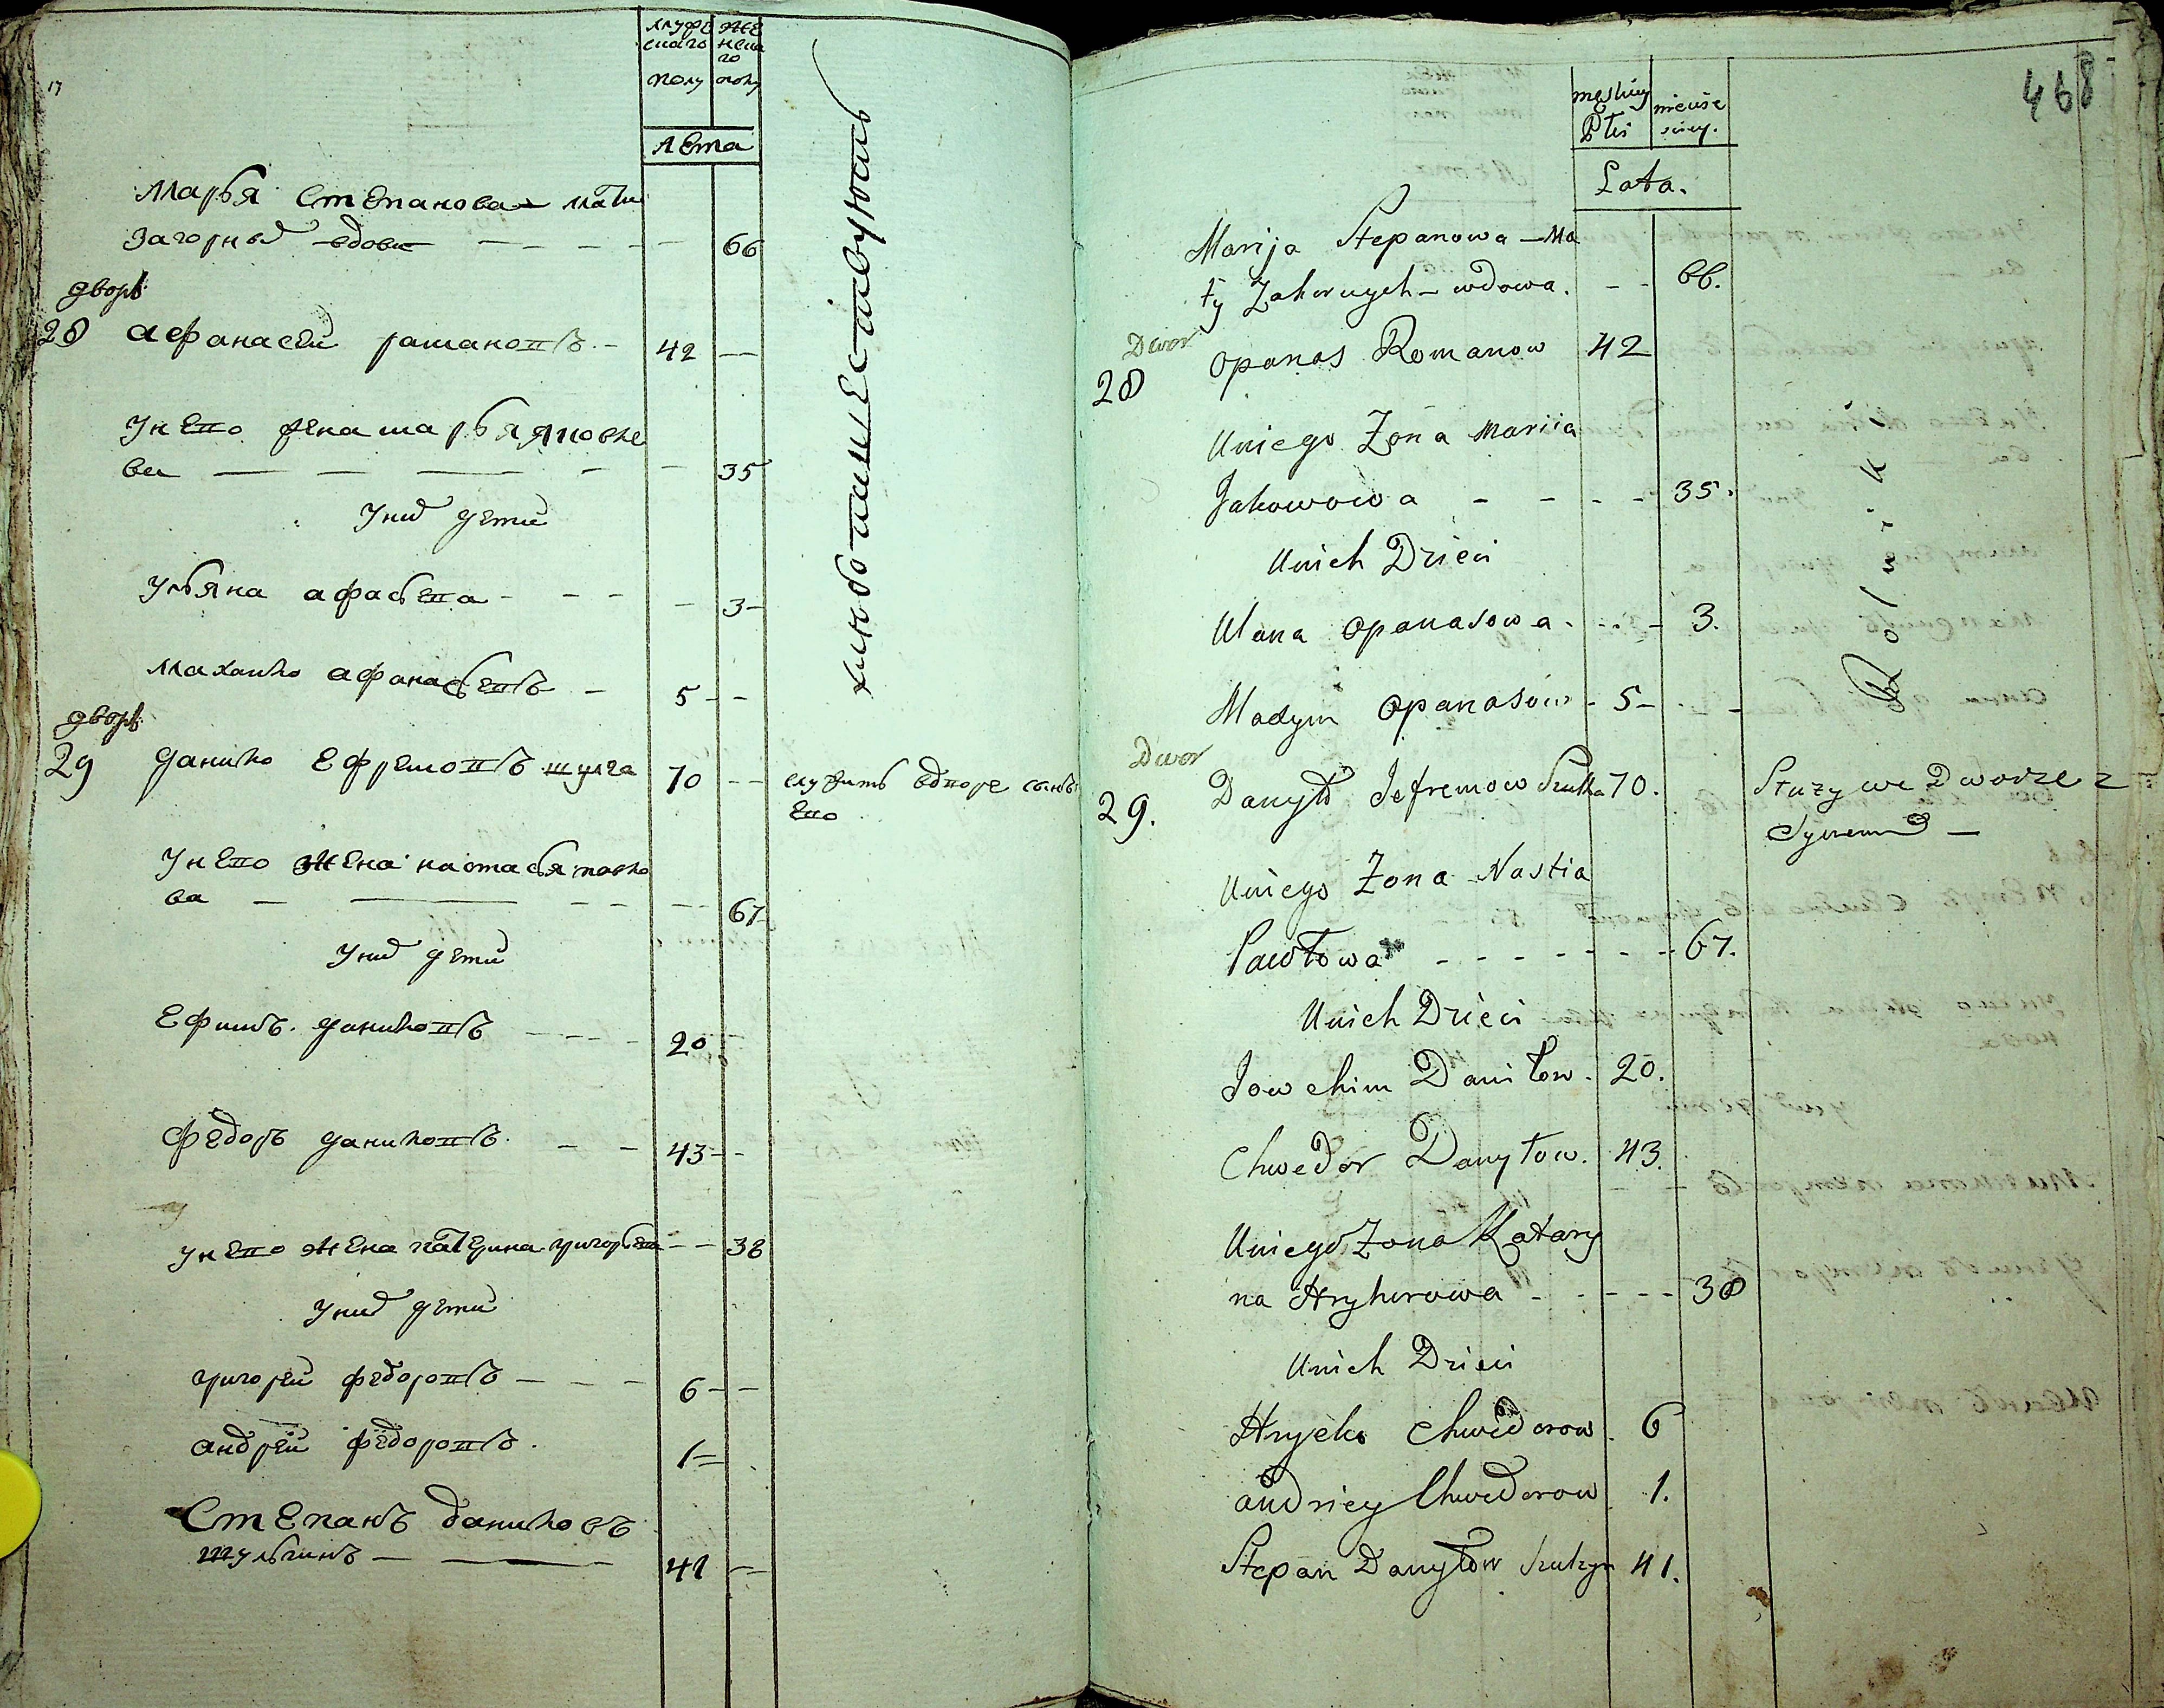 17
мужескаго полу
женскаго полу
лета
Марья Степанова мати
Загорных вдова 66
дворъ
28 Афанасей романовъ 42
У него жена марья яковле
ва 35
У них дети
Ульяна афанасьева 3
Махайло афанасьевъ 5
дворъ
29 Данило Ефремовъ шулга 70
служитъ в дворе сынъ
его
У него жена настасья павло
ва 67
У них дети
Ефимъ даниловъ 20
Федоръ даниловъ 43
У него жена катерина григорьева 38
У них дети
григорей федоровъ 6
андрей федоровъ 1
Степанъ даниловъ
шульгинъ 41
хлебопашествуютъ
468
męskiey Płci
Lata.
Marija Stepanowa Ma
ty Zahornych wdowa. 66.
Dwor
28 Opanas Romanow 42
Uniego Zona Mariia
Jakowowa 35.
Unich Dzieci
Ulana Opanasowa 3.
Madym Opanasow 5
Dwor
29. Danyło Jefremow Szulha 70.
Służy we Dworze z
Synem
Uniego Zona Nastia
Pawłowa 67.
Unich Dzieci
Jowchim Daniłow. 20.
Chwedor Danyłow. 43.
Uniego Zona Katary
na Hryhorowa 38
Unich Dzieci
Hryćko Chwedorow 6
andriey Chwedorow 1.
Stepan Danyłow Szulzyn 41.
Rolniki